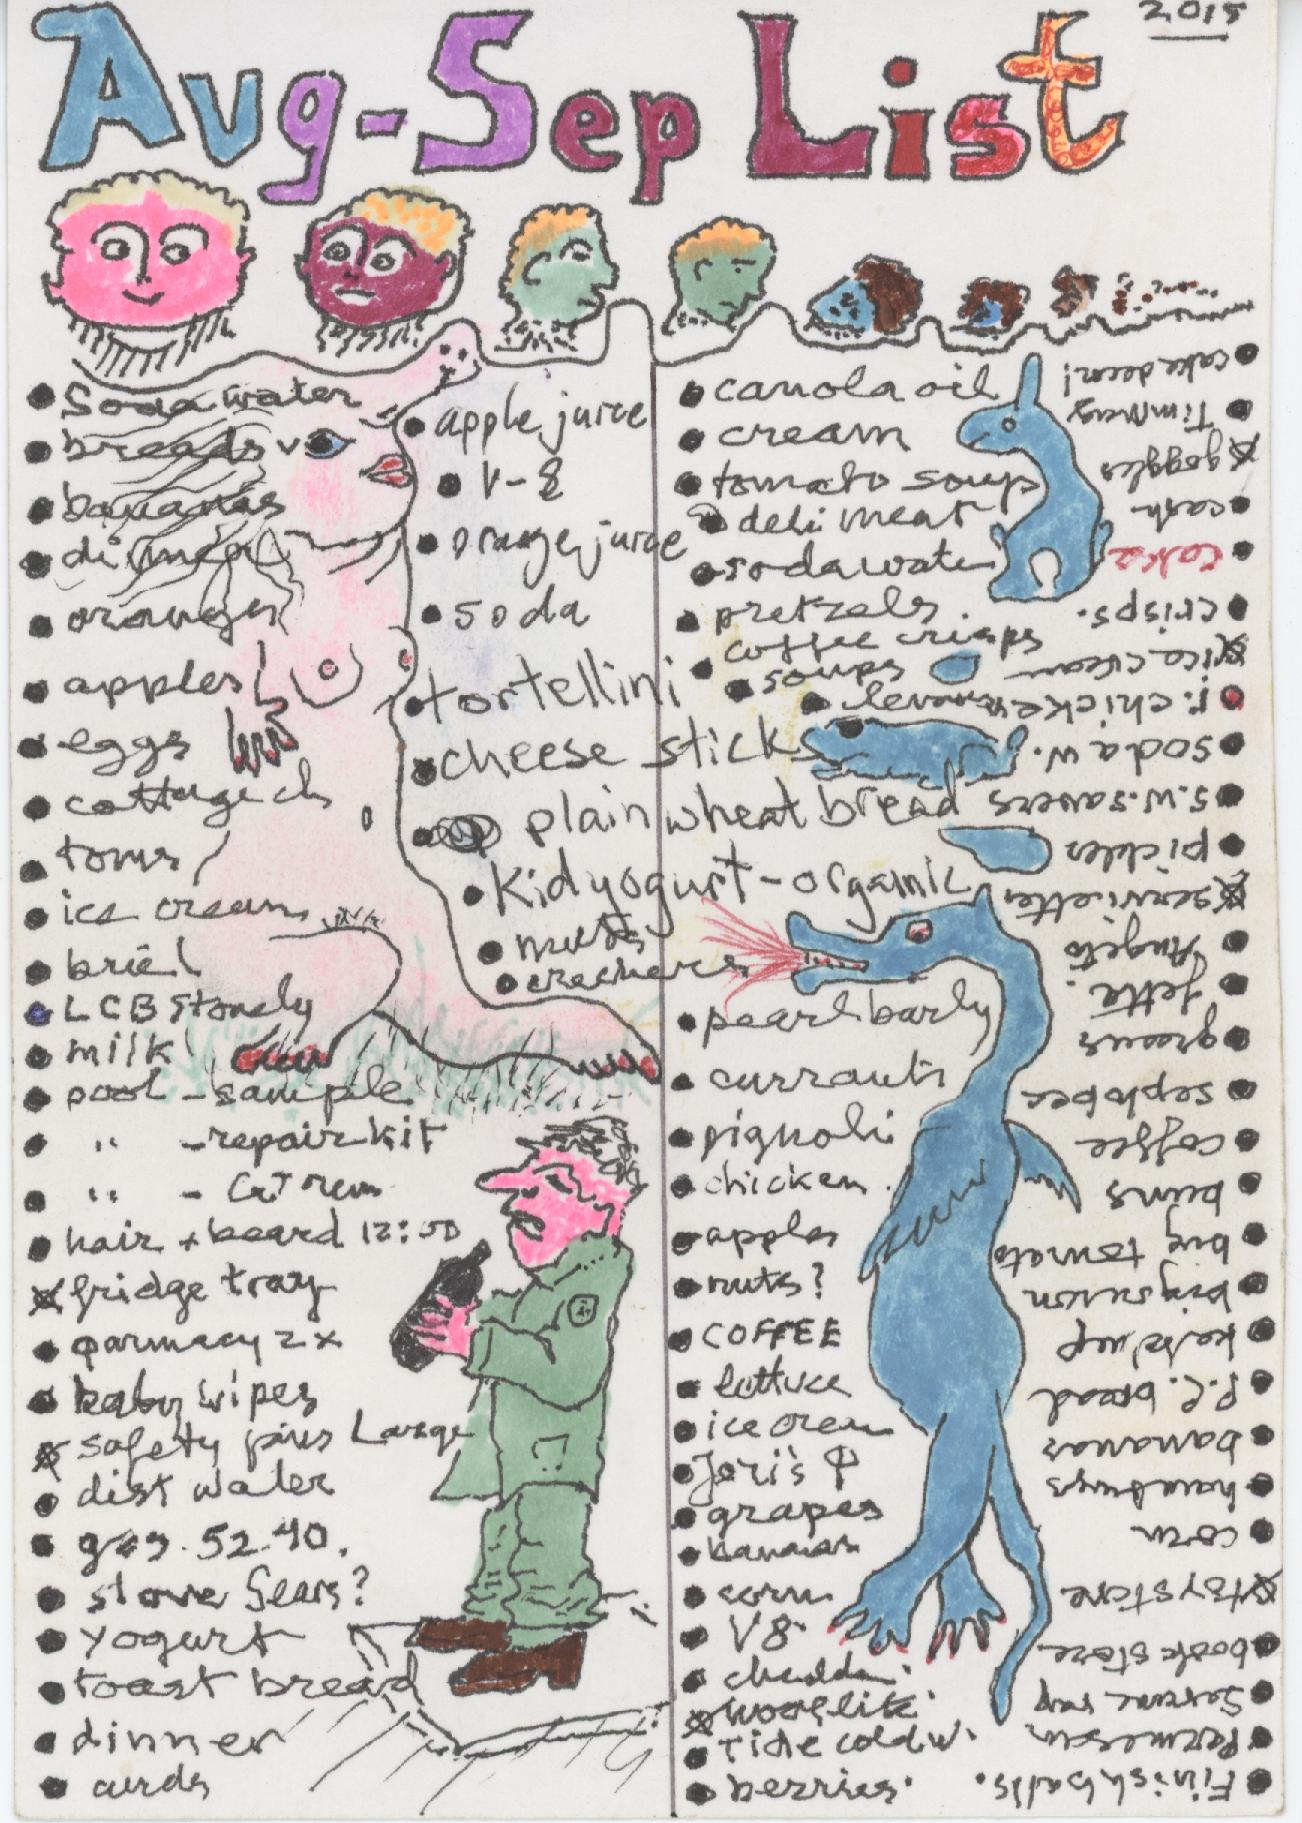 2015
Aug-Sep List
Soda water
breads
bananas
dinner
oranges
apples
eggs
cottage ch
toms
ice cream
brie
LCB Stonely
milk
pool - sample
" - repair kit
" -
hair + beard 12:00
fridge tray
parmacy 2x
baby wipes
safety pins Large
dist water
gas. 52.40.
stove Sears?
yogurt
toast bread
dinner
curds
apple juice
V-8
orange juice
soda
tortellini
cheese sticks
plain wheat bread
Kid yogurt - organic
nuts
crackers
canola oil
cream
tomato soups
deli meat
soda water
pretzels
coffee crisps
soups
pearl barly
currants
pignoli
chicken
apples
nuts?
COFFEE
lettuce
ice cream
Jori's
grapes
bananas
corn
V8
chedda
Tide cold w.
berries.
Finish balls.
Parmesan
book store
toy store
corn
hamburgs
bananas
P.C. bread
big onion
big tomato
buns
coffee
greens
feta
serviettes
pickles
s.w. savers
soda w.
r. chicken
ice cream
crisps.
coke
cash
goggles
Tim Mug
cake decor!